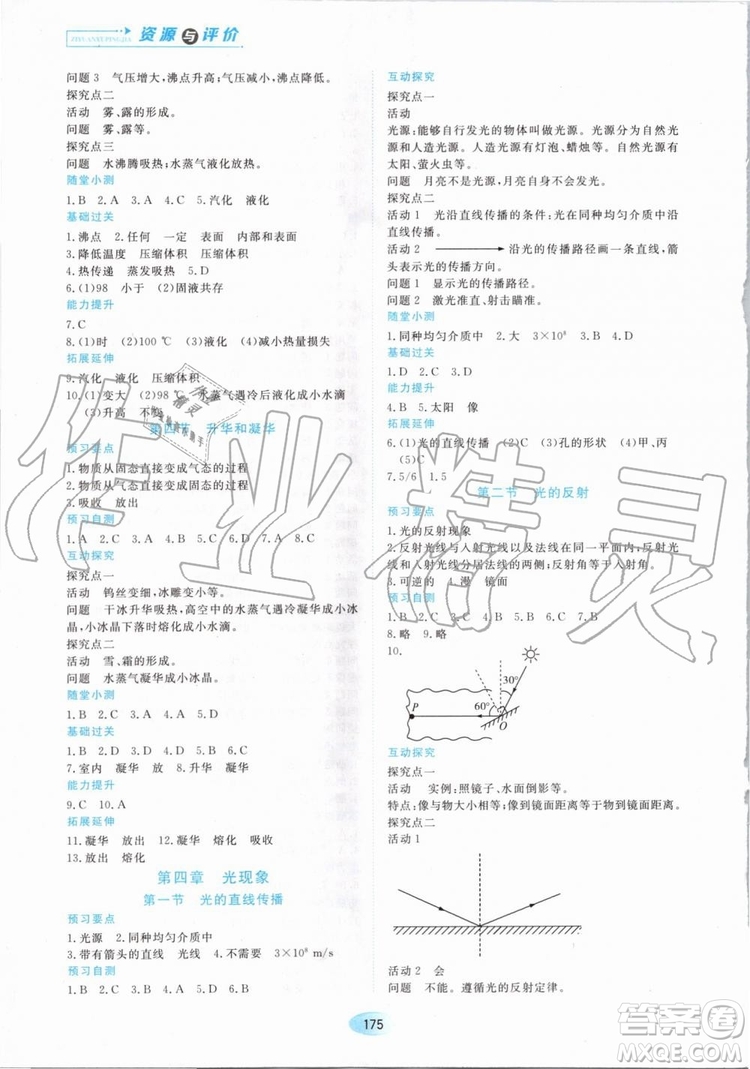 ZIYUANYUPINGJIA
资源与评价
问题 3 气压增大,沸点升高;气压减小,沸点降低。
探究点二
活动 雾、露的形成。
问题 雾、露等。
探究点三
问题 水沸腾吸热;水蒸气液化放热。
随堂小测
1.B 2.A 3.A 4.C 5.汽化 液化
基础过关
1.沸点 2.任何 一定 表面 内部和表面
3.降低温度 压缩体积 压缩体积
4.热传递 蒸发吸热 5.D
6.(1)98 小于 (2)固液共存
能力提升
7.C
8.(1)时 (2)100 ℃ (3)98 (4)减小热量损失
拓展延伸
9.汽化 液化 压缩体积
10.(1)变大 (2)98℃ 水蒸气遇冷后液化成小水滴
(3)升高 不变
第四节 升华和凝华
预习要点
1.物质从固态直接变成气态的过程
2.物质从气态直接变成固态的过程
3.吸收 放出
预习自测
1.A 2.C 3.D 4.A 5.B 6.D
互动探究
探究点一
活动 钨丝变细、冰雕变小等。
问题 干冰升华吸热,高空中的水蒸气遇冷凝华成小冰
晶,小冰晶下落时熔化成小水滴。
探究点二
活动 雪、霜的形成。
问题 水蒸气凝华成小冰晶。
随堂小测
1.B 2.D 3.A 4.A 5.C 6.B
基础过关
1.B 2.B 3.A 4.D 5.B 6.C
7.室内 凝华 放 8.升华 凝华
能力提升
9.C 10.A
拓展延伸
11.凝华 放出 12.熔化 吸收
13.放出 熔化
第四章 光现象
第一节 光的直线传播
预习要点
1.光源 2.同种均匀介质中
3.带有箭头的直线 光线 4.不需要 3×10⁸ m/s
预习自测
1.B 2.C 3.A 4.C 5.B
互动探究
探究点一
活动
光源:能够自行发光的物体叫做光源。分为自然光
源和人造光源。人造光源有灯泡、蜡烛等。自然光源有
太阳、萤火虫等。
问题 月亮不是光源,自身不能发光。
探究点二
活动 1 光沿直线传播的条件:光在同种均匀介质中沿
直线传播。
活动 2 沿光的传播路径画一条直线,箭
头表示光的传播方向。
问题 1 显示光的传播路径。
问题 2 激光准直、射击瞄准。
随堂小测
1.同种均匀介质中 2.大 3×10⁸ 3.C 4.B 5.D
基础过关
1.D 2.A 3.C
能力提升
4.B 5.太阳 像
拓展延伸
6.(1)光的直线传播 (2)C (3)孔的形状 (4)甲、丙
(5)C
7.5/6 1.5
第二节 光的反射
预习要点
1.光的反射现象
2.反射光线与入射光线以及法线在同一平面内;反射光
线和入射光线分居法线的两侧;反射角等于入射角
3.可逆的 4.漫 镜面
预习自测
1.B 2.B 3.C 4.C
8.略 9.略
10.
30°
P
60°
O
互动探究
探究点一
活动 实例:照镜子、水面倒影等。
特点:像与物大小相等;像到镜面距离等于物到镜面距离。
探究点二
活动 1
活动 2 会
问题 不能。遵循光的反射定律。
175
作业精灵
答案圈
MXQE.COM